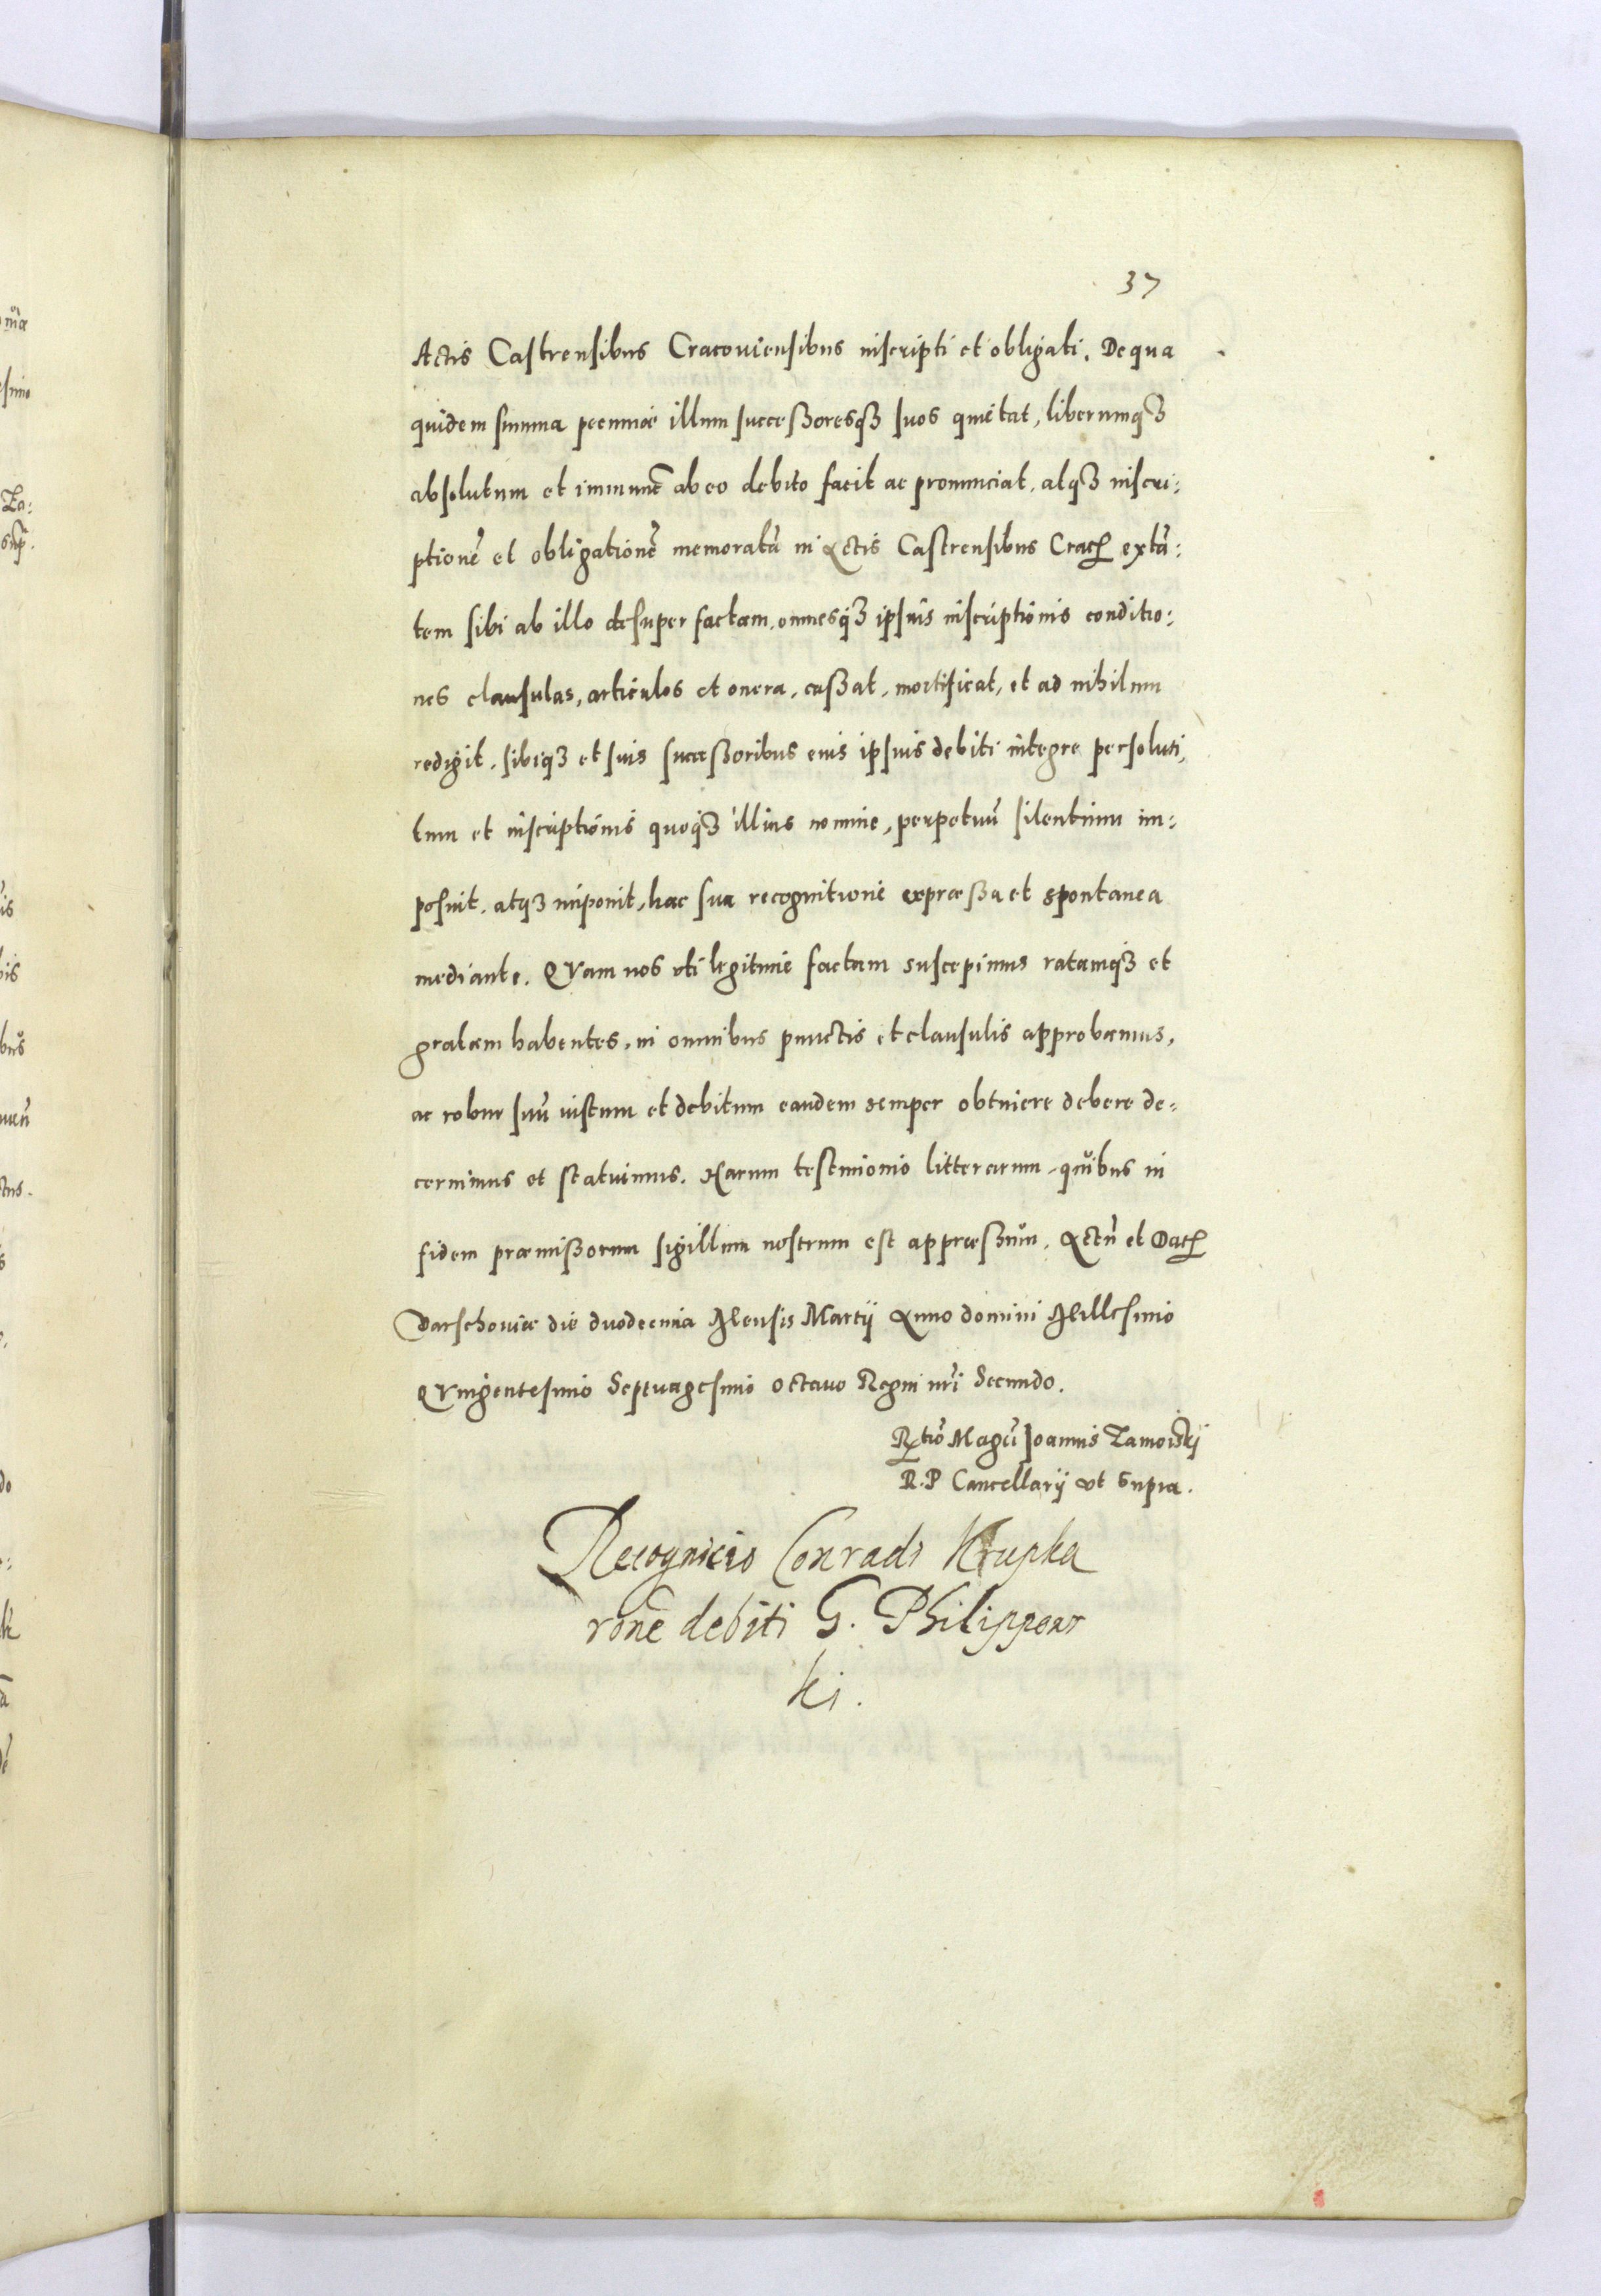 37
Actis Castrensibus Cracouiensibus inscripti et obligati. De qua
quidem summa pecuniæ illum successoresqȝ suos quietat, liberumqȝ
absolutum et immunē ab eo debito facit ac pronunciat, atqȝ inscri:
ptionē et obligationē memoratā in Actis Castrensibus Crac. extā:
tem sibi ab illo desuper factam, omnesqȝ ipsius inscriptionis conditio:
nes clausulas, articulos et onera, cassat, mortificat, et ad nihilum
redigit, sibiqȝ et suis successoribus eius ipsius debiti integre persoluti,
tum et inscriptionis quoqȝ illius nomine, perpetuū silentium im:
posuit, atqȝ imponit, hac sua recognitione expræssa et spontanea
mediante. QVam nos vti legitime factam suscepimus ratamqȝ et
gratam habentes, in omnibus punctis et clausulis approbamus,
ac robur suū iustum et debitum eandem semper obtinere debere de:
cernimus et statuimus. Harum testimonio litterarum, quibus in
fidem præmissorum sigillum nostrum est appræssum. Actū et Dat.
Varschouiæ die duodecima Mensis Martij Anno domini Millesimo
QVingentesimo Septuagesimo octauo Regni nrī Secundo.
Rtio Magci Joannis Zamoiskij
R.P Cancellarij vt supra.
Recognicio Conradi Krupka
rone debiti G. Philippows
ki.